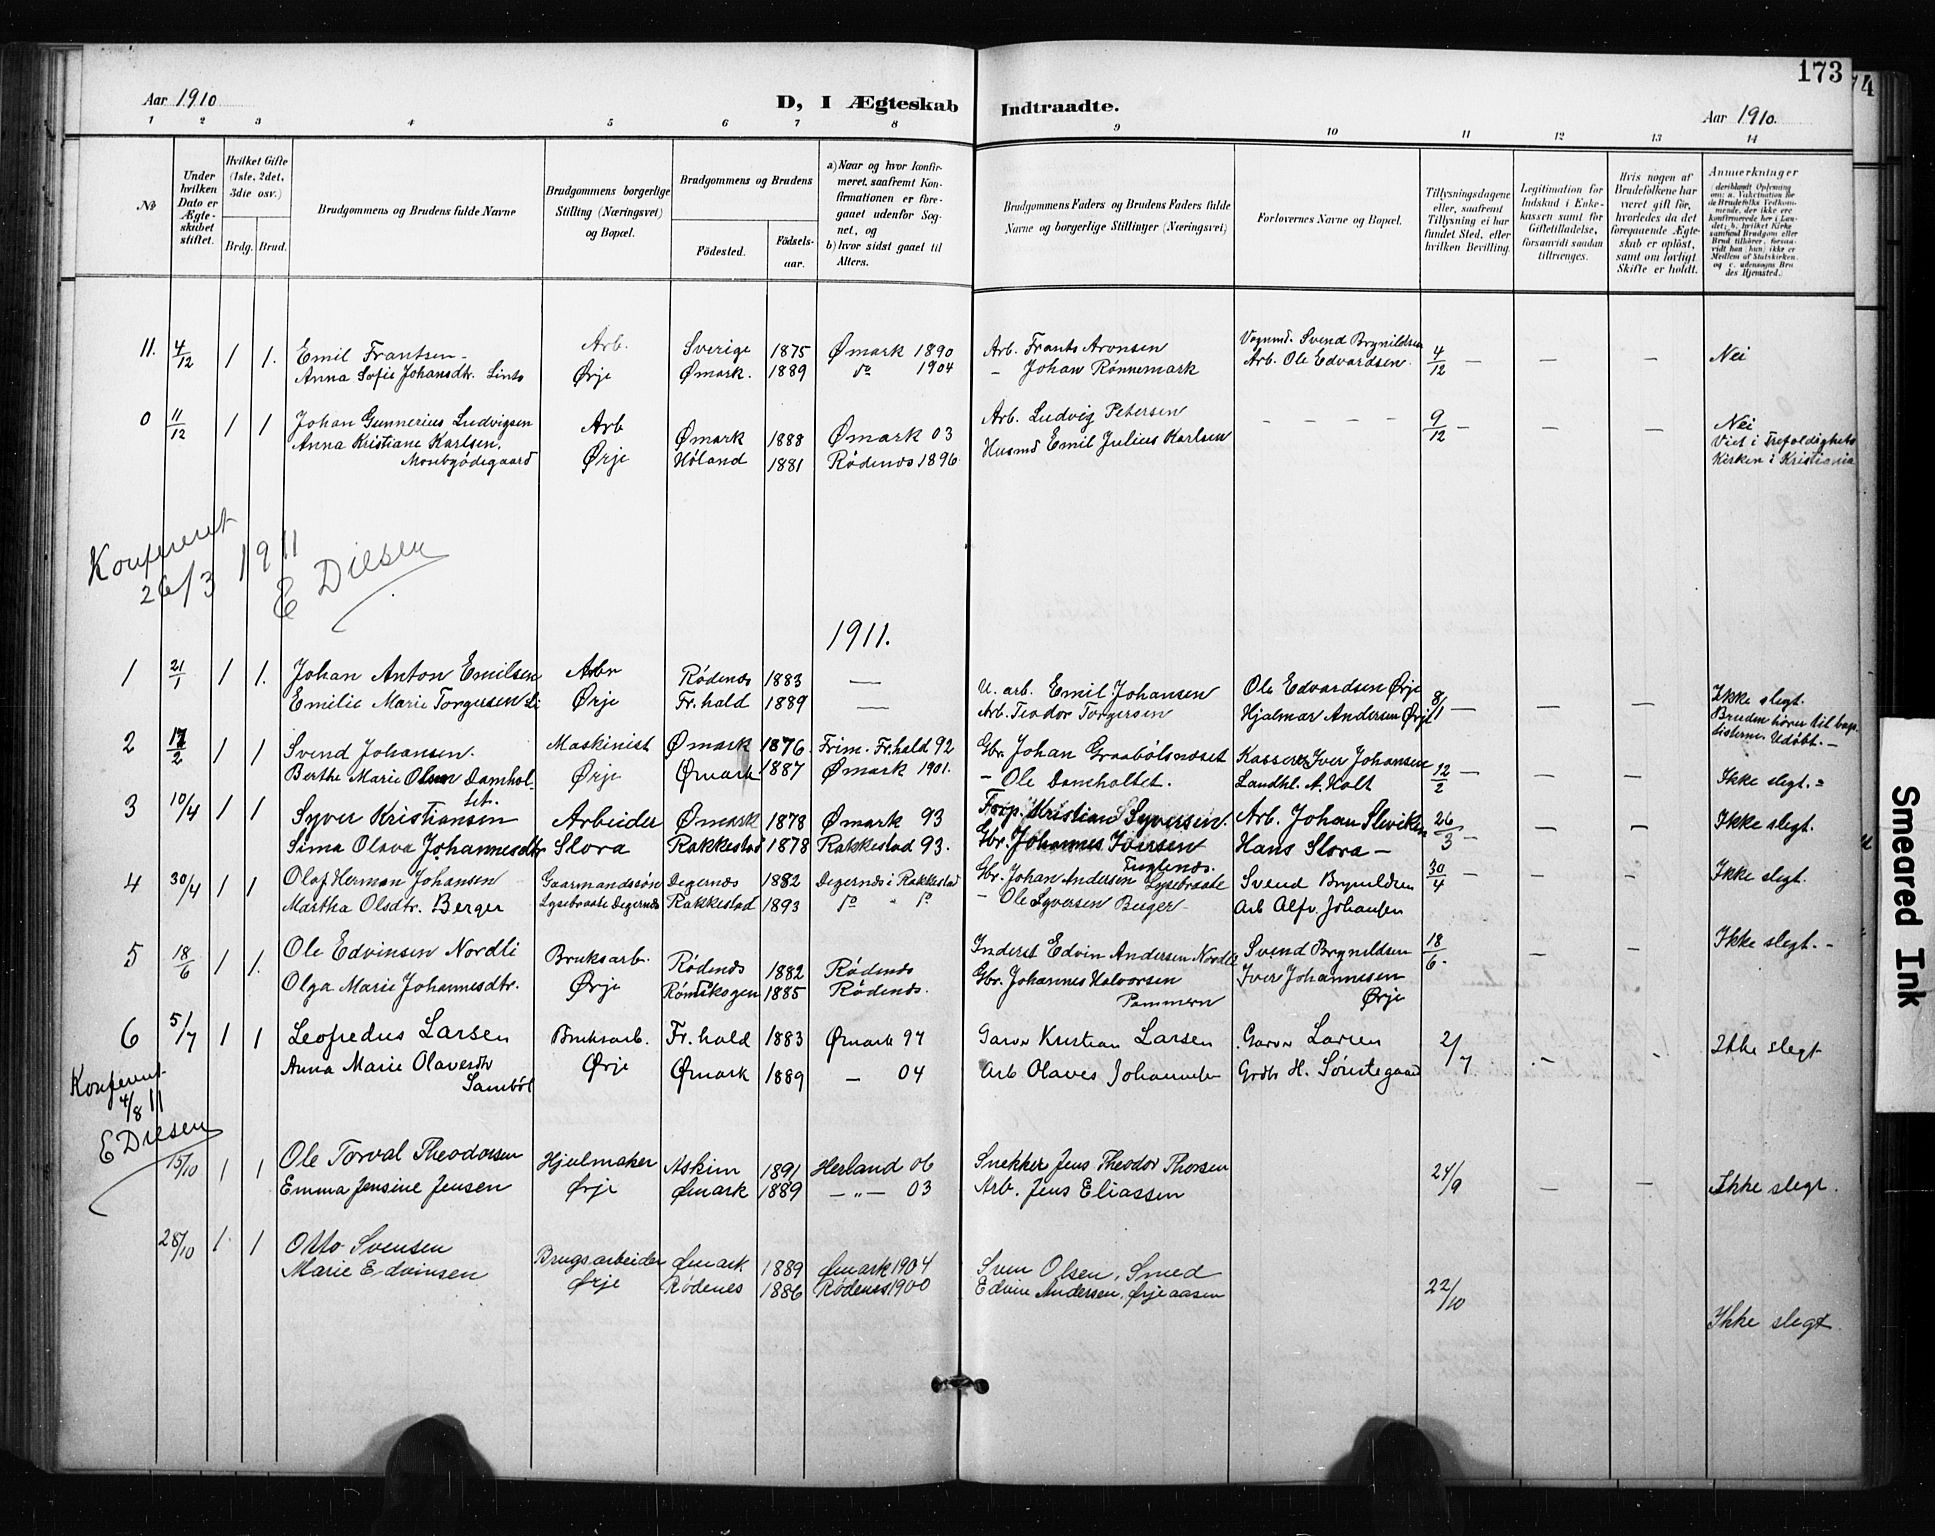 173
Aar 1910
D, I Ægteskab Indtraadte.
Aar 1910.
1 2 3 4 5 6 7 8 9 10 11 12 13 14
No
Under hvilken Dato er Ægteskabet stiftet.
Hvilket Gifte (1ste, 2det, 3die osv.)
Brdg. Brud.
Brudgommens og Brudens fulde Navne
Brudgommens borgerlige Stilling (Næringsvei) og Bopæl.
Brudgommens og Brudens
Födested.
Födselsaar.
a) Naar og hvor konfirmeret, saafremt Konfirmationen er foregaaet udenfor Sognet, og
b) hvor sidst gaaet til Alters.
Brudgommens Faders og Brudens Faders fulde Navne og borgerlige Stillinger (Næringsvei)
Forlovernes Navne og Bopæl.
Tillysningsdagene eller, saafremt Tillysning ei har fundet Sted, efter hvilken Bevilling.
Legitimation for Indskud i Enkekassen samt for Giftetilladelse, forsaavidt saadan tiltrænges.
Hvis nogen af Brudefolkene har været gift för, hvorledes da det foregaaende Ægteskab er oplöst, samt om lovligt Skifte er holdt.
Anmærkninger
11. 4/12 1 1. Emil Frantsen Arb. Sverige 1875 Ømark 1890 Arb. Frants Aronsen Svend Brynildsen 4/12 — — — Nei
Anna Sofie Johansdtr. Linto Ørje Ømark. 1889 do 1904 — Johan Rønnemark Arb. Ole Edvardsen.
0 11/12 1 1 Johan Gunnerius Ludvigsen Arb Ømark 1888 Ømark 03 Arb. Ludvig Petersen — — — — 9/12 — — — Nei
Anna Kristiane Karlsen, Ørje Høland 1881 Rødenes 1896 Husmd Emil Julius Karlsen Viet i Trefoldigheds
Mosebyødegaard Kirken i Kristiania
Konfereret
26/3 1911
E Diesen
1911.
1 21/1 1 1. Johan Anton Emilsen Arbr Rødenes 1883 — U. arb. Emil Johansen Ole Edvardsen Ørje 8/1 — — — Ikke slegt.
Emilie Marie Torgersen Ørje Fr.hald 1889 — Arb. Teodor Torgersen Hjalmar Andersen Ørje Bruden hører til bap-
tisterne. Udøbt. —
2 17/2 1 1 Svend Johansen. Maskinist Ømark 1876. Frim. Fr.hald 92 Gbr. Johan Graabølmoset Iver Johansen 12/2 — — — Ikke slegt.
Berthe Marie Olsen Damhol- Ørje Ømark 1887 Ømark 1901. — Ole Damholtet. Landhl. A. Holt
tet.
3 10/4 1 1 Syver Kristiansen Arbeider Ømark 1878 Ømark 93 Forp. Kristian Syversen. Arb. Johan Sleviken 26/3 — — — Ikke slegt.
Sima Olava Johannesdtr Slora Rakkestad 1878 Rakkestad 93. Gbr. Johannes Iversen Hans Slora —
Fuglenes.
4 30/4 1 1 Olaf Herman Johansen Gaarmandssøn Degernes 1882 Degernes i Rakkestad Gbr. Johan Andersen Lysebraate Svend Brynildsen 30/4 — — — Ikke slegt.
Martha Olsdtr. Berger Lysebraate Degernes Rakkestad 1893 do " do — Ole Syversen Berger Arb Alfr. Johansen
5 18/6 1 1. Ole Edvinsen Nordli Bruksarb. Rødenes 1882 Rødenes Inderst Edvin Andersen Nordli Svend Brynildsen 18/6. — — Ikke slegt. —
Olga Marie Johannesdtr. Ørje Rømskogen 1885 Rødenes. Gbr. Johannes Halvorsen Iver Johannesen
Pammern Ørje
6 5/7 1 1 Leofredus Larsen Bruksarb. Fr.hald 1883 Ømark 97 Garver Kristian Larsen Garver Larsen 2/7 Ikke slegt
Anna Marie Olavesdtr Ørje Ømark 1889 — 04 Arb Olaves Johannesen H. Sørstegaard
Sandbøl
Konfereret
4/8 11
E Diesen
15/10 1 1 Ole Torval Theodorsen Hjulmaker Askim 1891 Herland 06 Snekker Jens Theodor Thorsen 24/9 — — Ikke slegt.
Emma Jensine Jensen Ørje Ømark 1889 — " — 03 Arb. Jens Eliassen
28/10 1. 1 Otto Svensen Brugsarbeider Ømark 1889 Ømark 1904 Sven Olsen, Smed 22/10
Marie Edvinsen Ørje Rødenes 1886 Rødenes 1900 Edvin Andersen, Ørjeaasen
Ikke slegt.
Smeared Ink